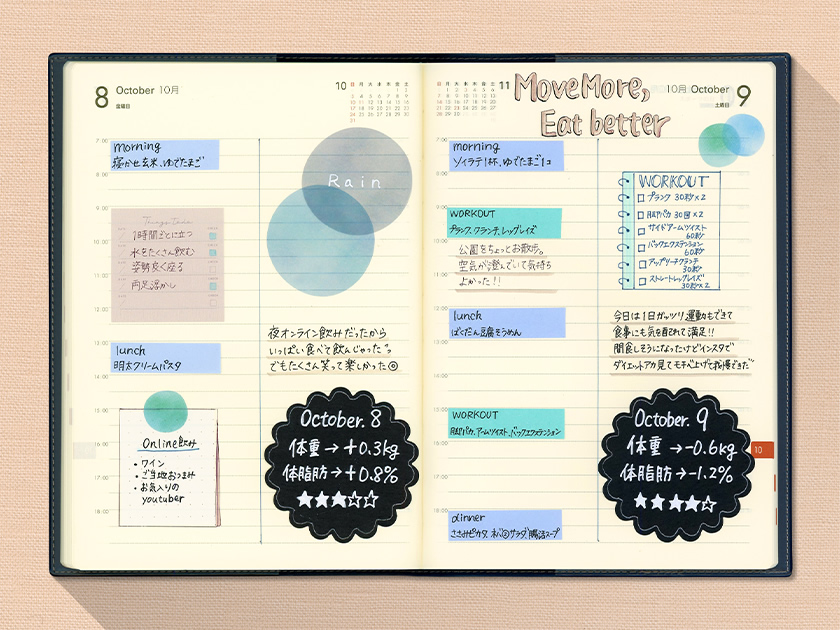 8 October 10月
金曜日
10 日 月 火 水 木 金 土
7:00
morning
寝かせ玄米、ゆでたまご
8:00
Rain
Things todo
1時間ごとに立つ
水をたくさん飲む
姿勢良く座る
両足浮かし
10:00
11:00
12:00
夜オンライン飲みだったから
いっぱい食べて飲んじゃった
でもたくさん笑って楽しかった◎
13:00
lunch
明太クリームパスタ
14:00
15:00
Online飲み
・ワイン
・ご当地おつまみ
・お気入りの
youtuber
16:00
17:00
18:00
October. 8
体重→+0.3kg
体脂肪→+0.8%
★★★☆☆
日 月 火 水 木 金 土 11
Move More,
Eat better
10月 October 9
土曜日
7:00
morning
ソイラテ1杯、ゆでたまご1コ
8:00
WORKOUT
プランク、クランチ、レッグレイズ
公園をちょっとお散歩。
空気が澄んでいて気持ち
よかった!!
10:00
11:00
12:00
lunch
ばくだん豆腐そうめん
13:00
14:00
15:00
WORKOUT
16:00
17:00
18:00
dinner
ささみピカタ、ネバ◎サラダ、腸活スープ
WORKOUT
□プランク 30秒×2
□ 30回×2
□サイドアームツイスト
60秒
□バックエクステンション
60秒
□アップリーチクランチ
30秒
□ストレートレッグレイズ
30秒×2
今日は1日ガッツリ運動もできて
食事にも気を配れて満足!!
間食しそうになったけどインスタで
ダイエットアカ見てモチベ上げて我慢できた
October. 9
体重→-0.6kg
体脂肪→-1.2%
★★★★☆
10